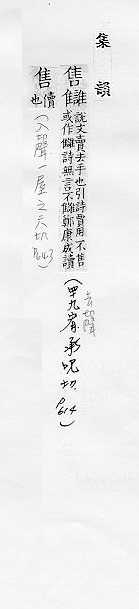 集韻
售雔讎說文賣去手也引詩賈用不售
或作雔詩無言不讎鄭康成讀
(去聲四九宥承呪切P.614)
售 賣也(入聲一屋之六切P.643)